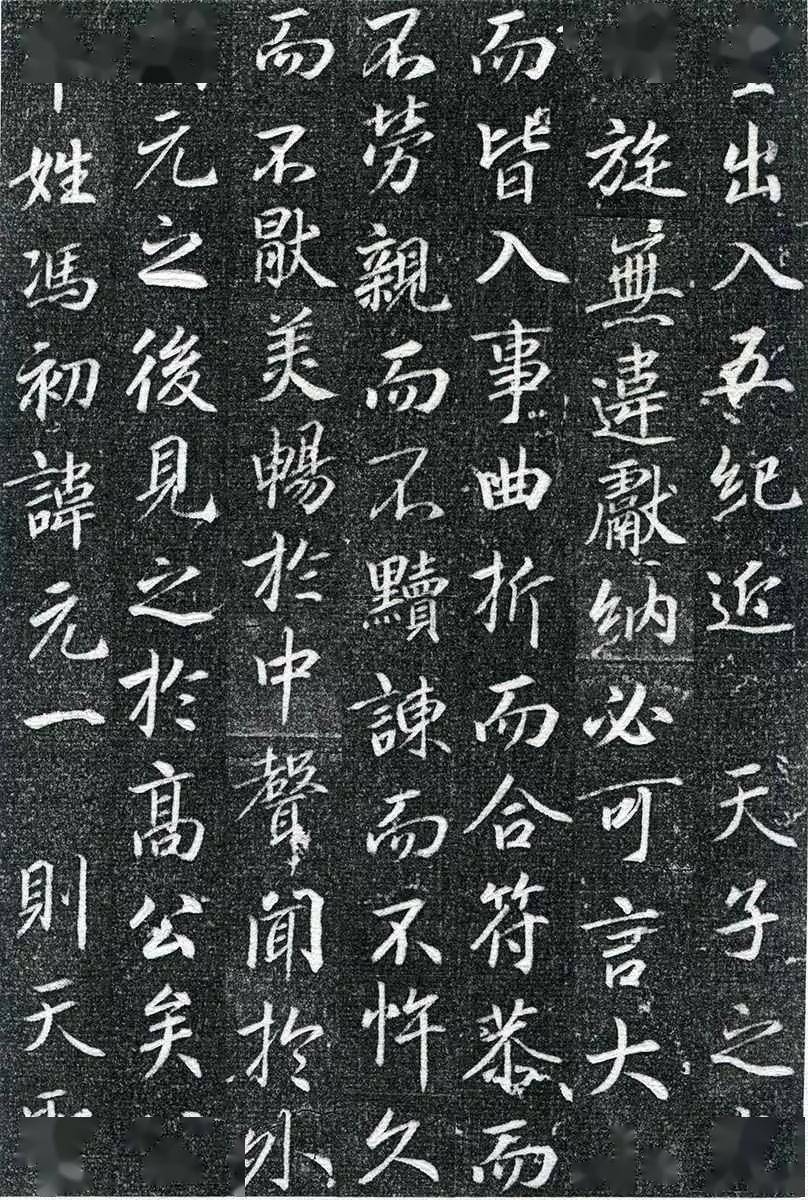 出入五紀近天子之
旋無違獻納必可言大
而皆入事曲折而合符恭而
不勞親而不黷諫而不忤久
而不猒美暢於中聲聞於外
元之後見之於高公矣
姓馮初諱元一則天